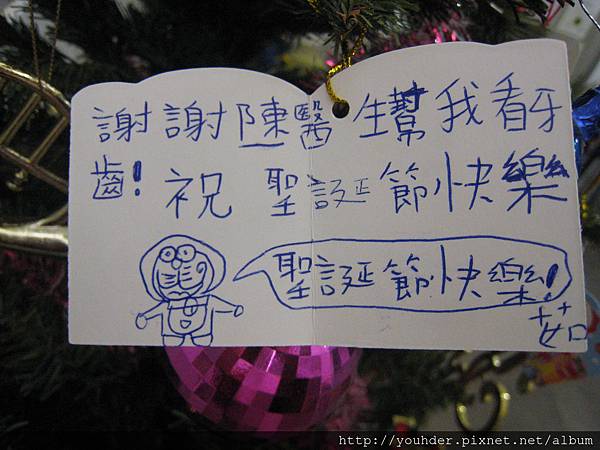 謝謝陳醫生幫我看牙
齒!祝聖誕節快樂
聖誕節快樂!
茹
http://youhder.pixnet.net/album